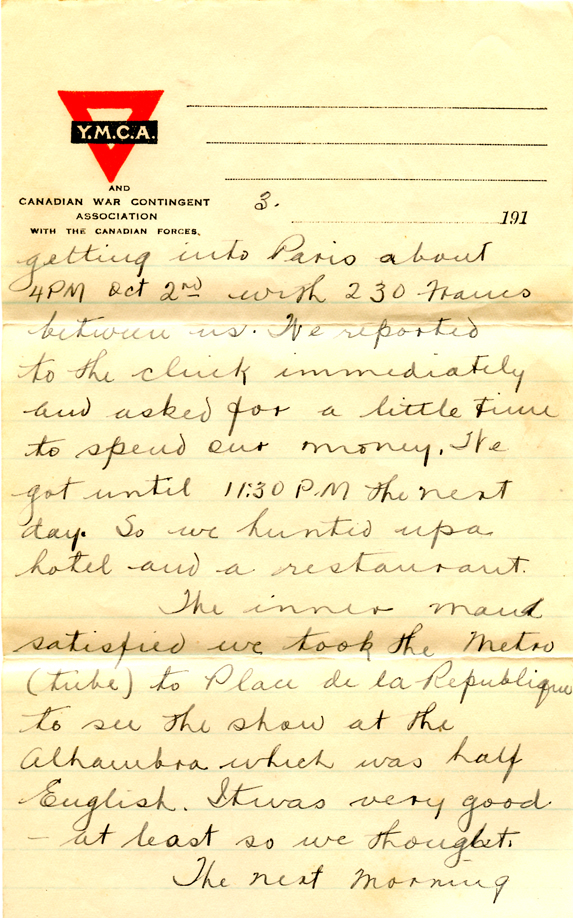 Y.M.C.A.
AND
CANADIAN WAR CONTINGENT
ASSOCIATION
WITH THE CANADIAN FORCES.
3. 191
getting into Paris about
4PM Oct 2nd with 230 francs
between us. We reported
to the clerk immediately
and asked for a little time
to spend our money. We
got until 11:30 P.M the next
day. So we hunted up a
hotel and a restaurant.
The inner man
satisfied we took the Metro
(tube) to Place de la Republique
to see the show at the
Alhambra which was half
English. It was very good
- at least so we thought.
The next morning